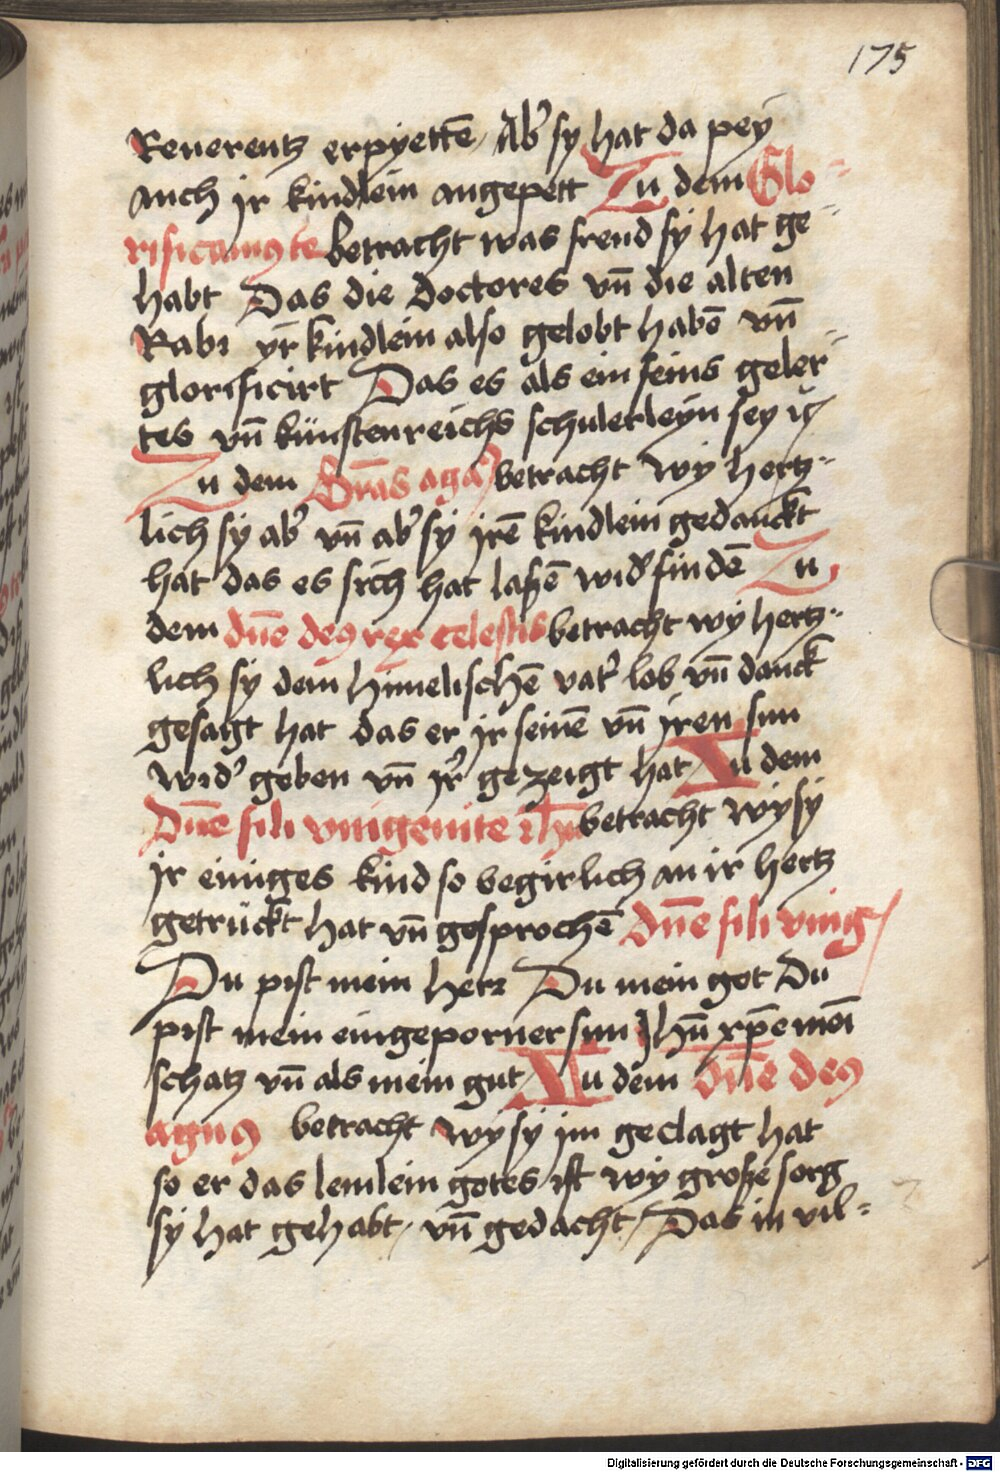 175
Reuerentz erpyettē / Ab' sy hat da pey
auch jr kindlein angepett Zu dem Glo-
rificamꝰ te betracht was freud sy hat ge-
habt Das die doctores vn̄ die alten
Rabi yr̄ kindlein also gelobt habē vn̄
glorificirt Das es als ein feins geler-
tes vn̄ künstenreichs schulerleyn sey
Zu dem Grās agā betracht wy hertz-
lich sy ab' vn̄ ab' sy jrē kindlein gedanckt
hat das es sich hat laßē wid' findē Zu
dem dn̄e deꝰ rex celestis betracht wy hertz-
lich sy dem himelischē vat' lob vn̄ danck
gesagt hat das er jr seinē vn̄ jren sun
wid' geben vn̄ jr' gezeigt hat Zu dem
Dn̄e fili vnigenite ihū betracht wy sy
jr einiges kind so begirlich an ir hertz
getrückt hat vn̄ gesprochē Dn̄e fili vnig /
Du pist mein herr Du mein got Du
pist mein eingeporner sun Jhū xp̄e mein
schatz vn̄ als mein gut / Zu dem Dn̄e deꝰ
agnꝰ betracht wy sy jm geclagt hat
so er das lemlein gotes ist wy große sorg
sy hat gehabt / vn̄ gedacht / Das in vil-
Digitalisierung gefördert durch die Deutsche Forschungsgemeinschaft - DFG